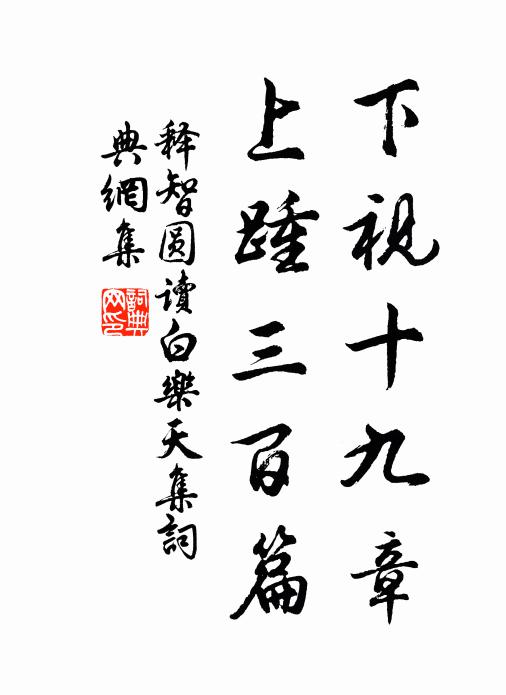 下視十九章
上踵三百篇
释智圆讀白樂天集詞
典網集
詞典网印